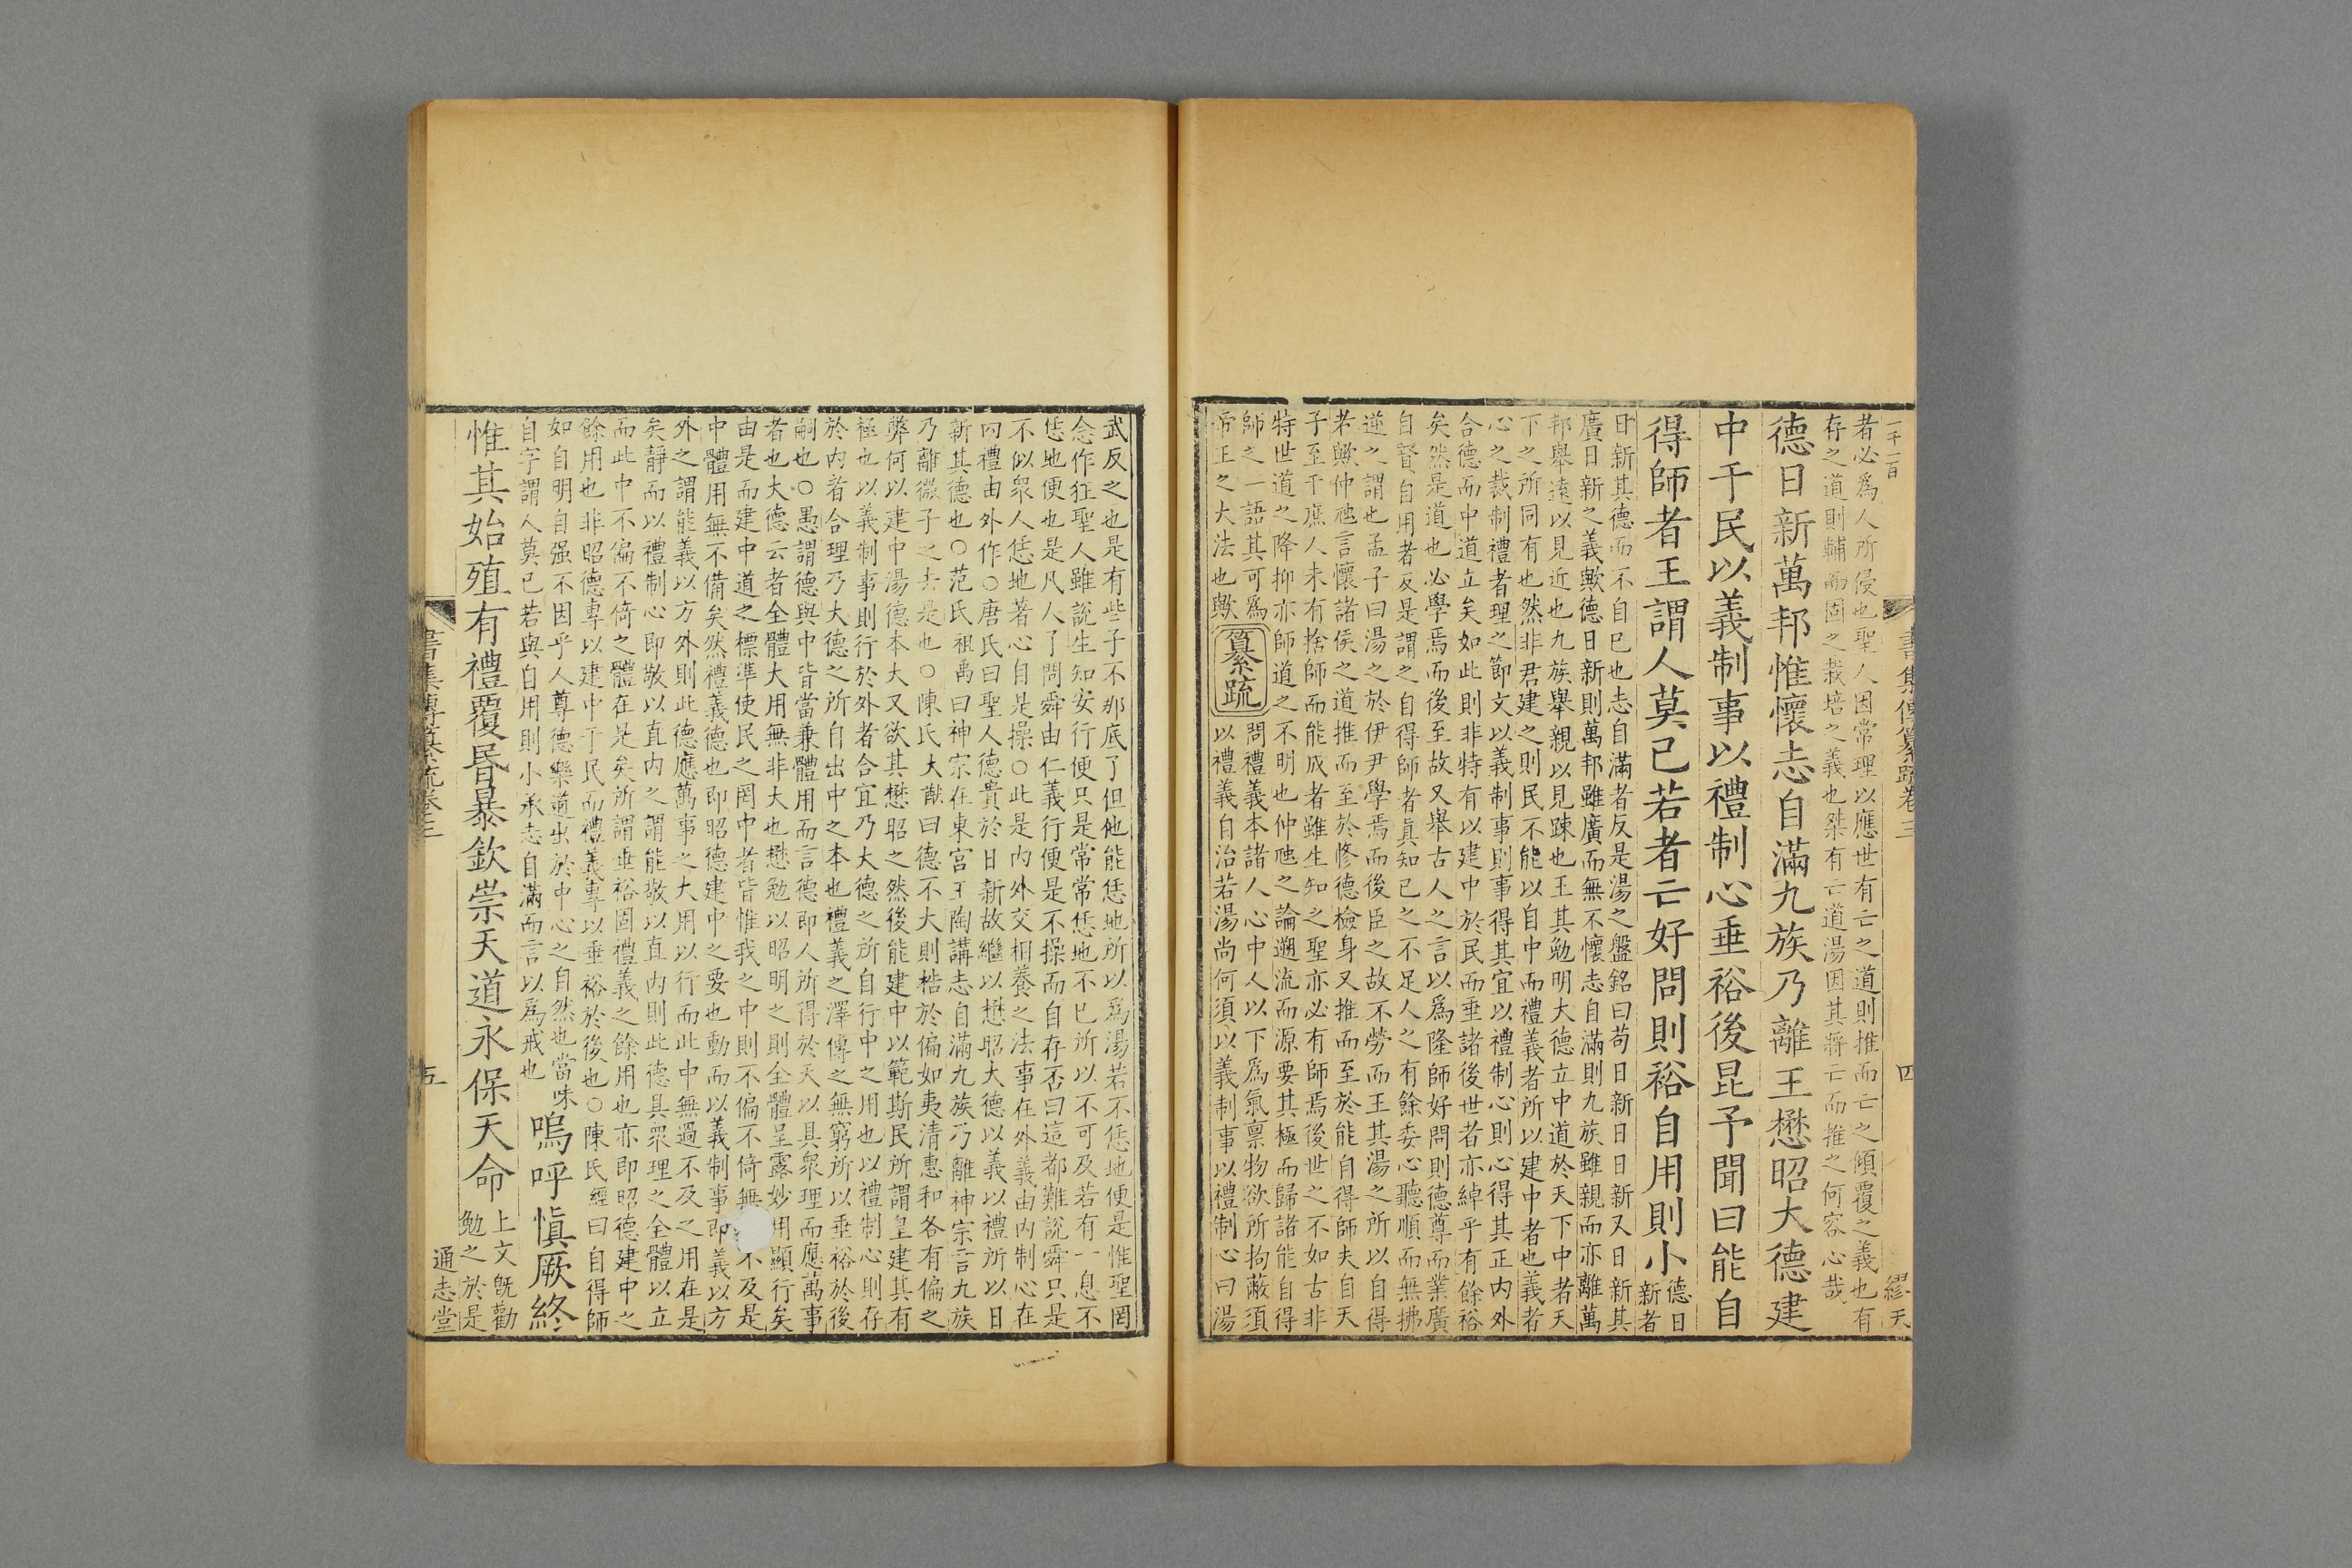 一千一百
書集傳纂疏卷三
四
繆天
者必爲人所侵也聖人因常理以應世有亡之道則推而亡之傾覆之義也有
存之道則輔而固之栽培之義也桀有亡道湯因其將亡而推之何容心哉
德日新萬邦惟懷志自滿九族乃離王懋昭大德建
中于民以義制事以禮制心垂裕後昆予聞曰能自
得師者王謂人莫已若者亡好問則裕自用則小
德日
新者
日新其德而不自已也志自滿者反是湯之盤銘曰苟日新日日新又日新其
廣日新之義歟德日新則萬邦雖廣而無不懷志自滿則九族雖親而亦離萬
邦舉遠以見近也九族舉親以見踈也王其勉明大德立中道於天下中者天
下之所同有也然非君建之則民不能以自中而禮義者所以建中者也義者
心之裁制禮者理之節文以義制事則事得其宜以禮制心則心得其正内外
合德而中道立矣如此則非特有以建中於民而垂諸後世者亦綽乎有餘裕
矣然是道也必學焉而後至故又舉古人之言以爲隆師好問則德尊而業廣
自賢自用者反是謂之自得師者眞知已之不足人之有餘委心聽順而無拂
逆之謂也孟子曰湯之於伊尹學焉而後臣之故不勞而王其湯之所以自得
者歟仲虺言懷諸侯之道推而至於修德檢身又推而至於能自得師夫自天
子至于庶人未有捨師而能成者雖生知之聖亦必有師焉後世之不如古非
特世道之降抑亦師道之不明也仲虺之論遡流而源要其極而歸諸能自得
師之一語其可爲
帝王之大法也歟
纂疏
問禮義本諸人心中人以下爲氣禀物欲所拘蔽須
以禮義自治若湯尚何須以義制事以禮制心曰湯
武反之也是有些子不那底了但他能恁地所以爲湯若不恁地便是惟聖罔
念作狂聖人雖說生知安行便只是常常恁地不已所以不可及若有一息不
恁地便也是凡人了問舜由仁義行便是不操而自存否曰這都難說舜只是
不似衆人恁地著心自是操○此是内外交相養之法事在外義由内制心在
内禮由外作○唐氏曰聖人德貴於日新故繼以懋昭大德以義以禮所以日
新其德也○范氏祖禹曰神宗在東宮王陶講志自滿九族乃離神宗言九族
乃離微子之去是也○陳氏大猷曰德不大則梏於偏如夷清惠和各有偏之
弊何以建中湯德本大又欲其懋昭之然後能建中以範斯民所謂皇建其有
極也以義制事則行於外者合宜乃大德之所自行中之用也以禮制心則存
於内者合理乃大德之所自出中之本也禮義之澤傳之無窮所以垂裕於後
嗣也○愚謂德與中皆當兼體用而言德即人所得於天以具衆理而應萬事
者也大德云者全體大用無非大也懋勉以昭明之則全體呈露妙用顯行矣
由是而建中道之標準使民之罔中者皆惟我之中則不偏不倚無不及是
中體用無不備矣然禮義德也即昭德建中之要也動而以義制事即義以方
外之謂能義以方外則此德應萬事之大用以行而此中無過不及之用在是
矣靜而以禮制心即敬以直内之謂能敬以直内則此德具衆理之全體以立
而此中不偏不倚之體在是矣所謂垂裕固禮義之餘用也亦即昭德建中之
餘用也非昭德專以建中于民而禮義專以垂裕於後也○陳氏經曰自得師
如自明自强不因乎人尊德樂道出於中心之自然也當味
自字謂人莫已若與自用則小承志自滿而言以爲戒也
嗚呼愼厥終
惟其始殖有禮覆昏暴欽崇天道永保天命
上文旣勸
勉之於是
書集傳纂疏卷三
五
通志堂